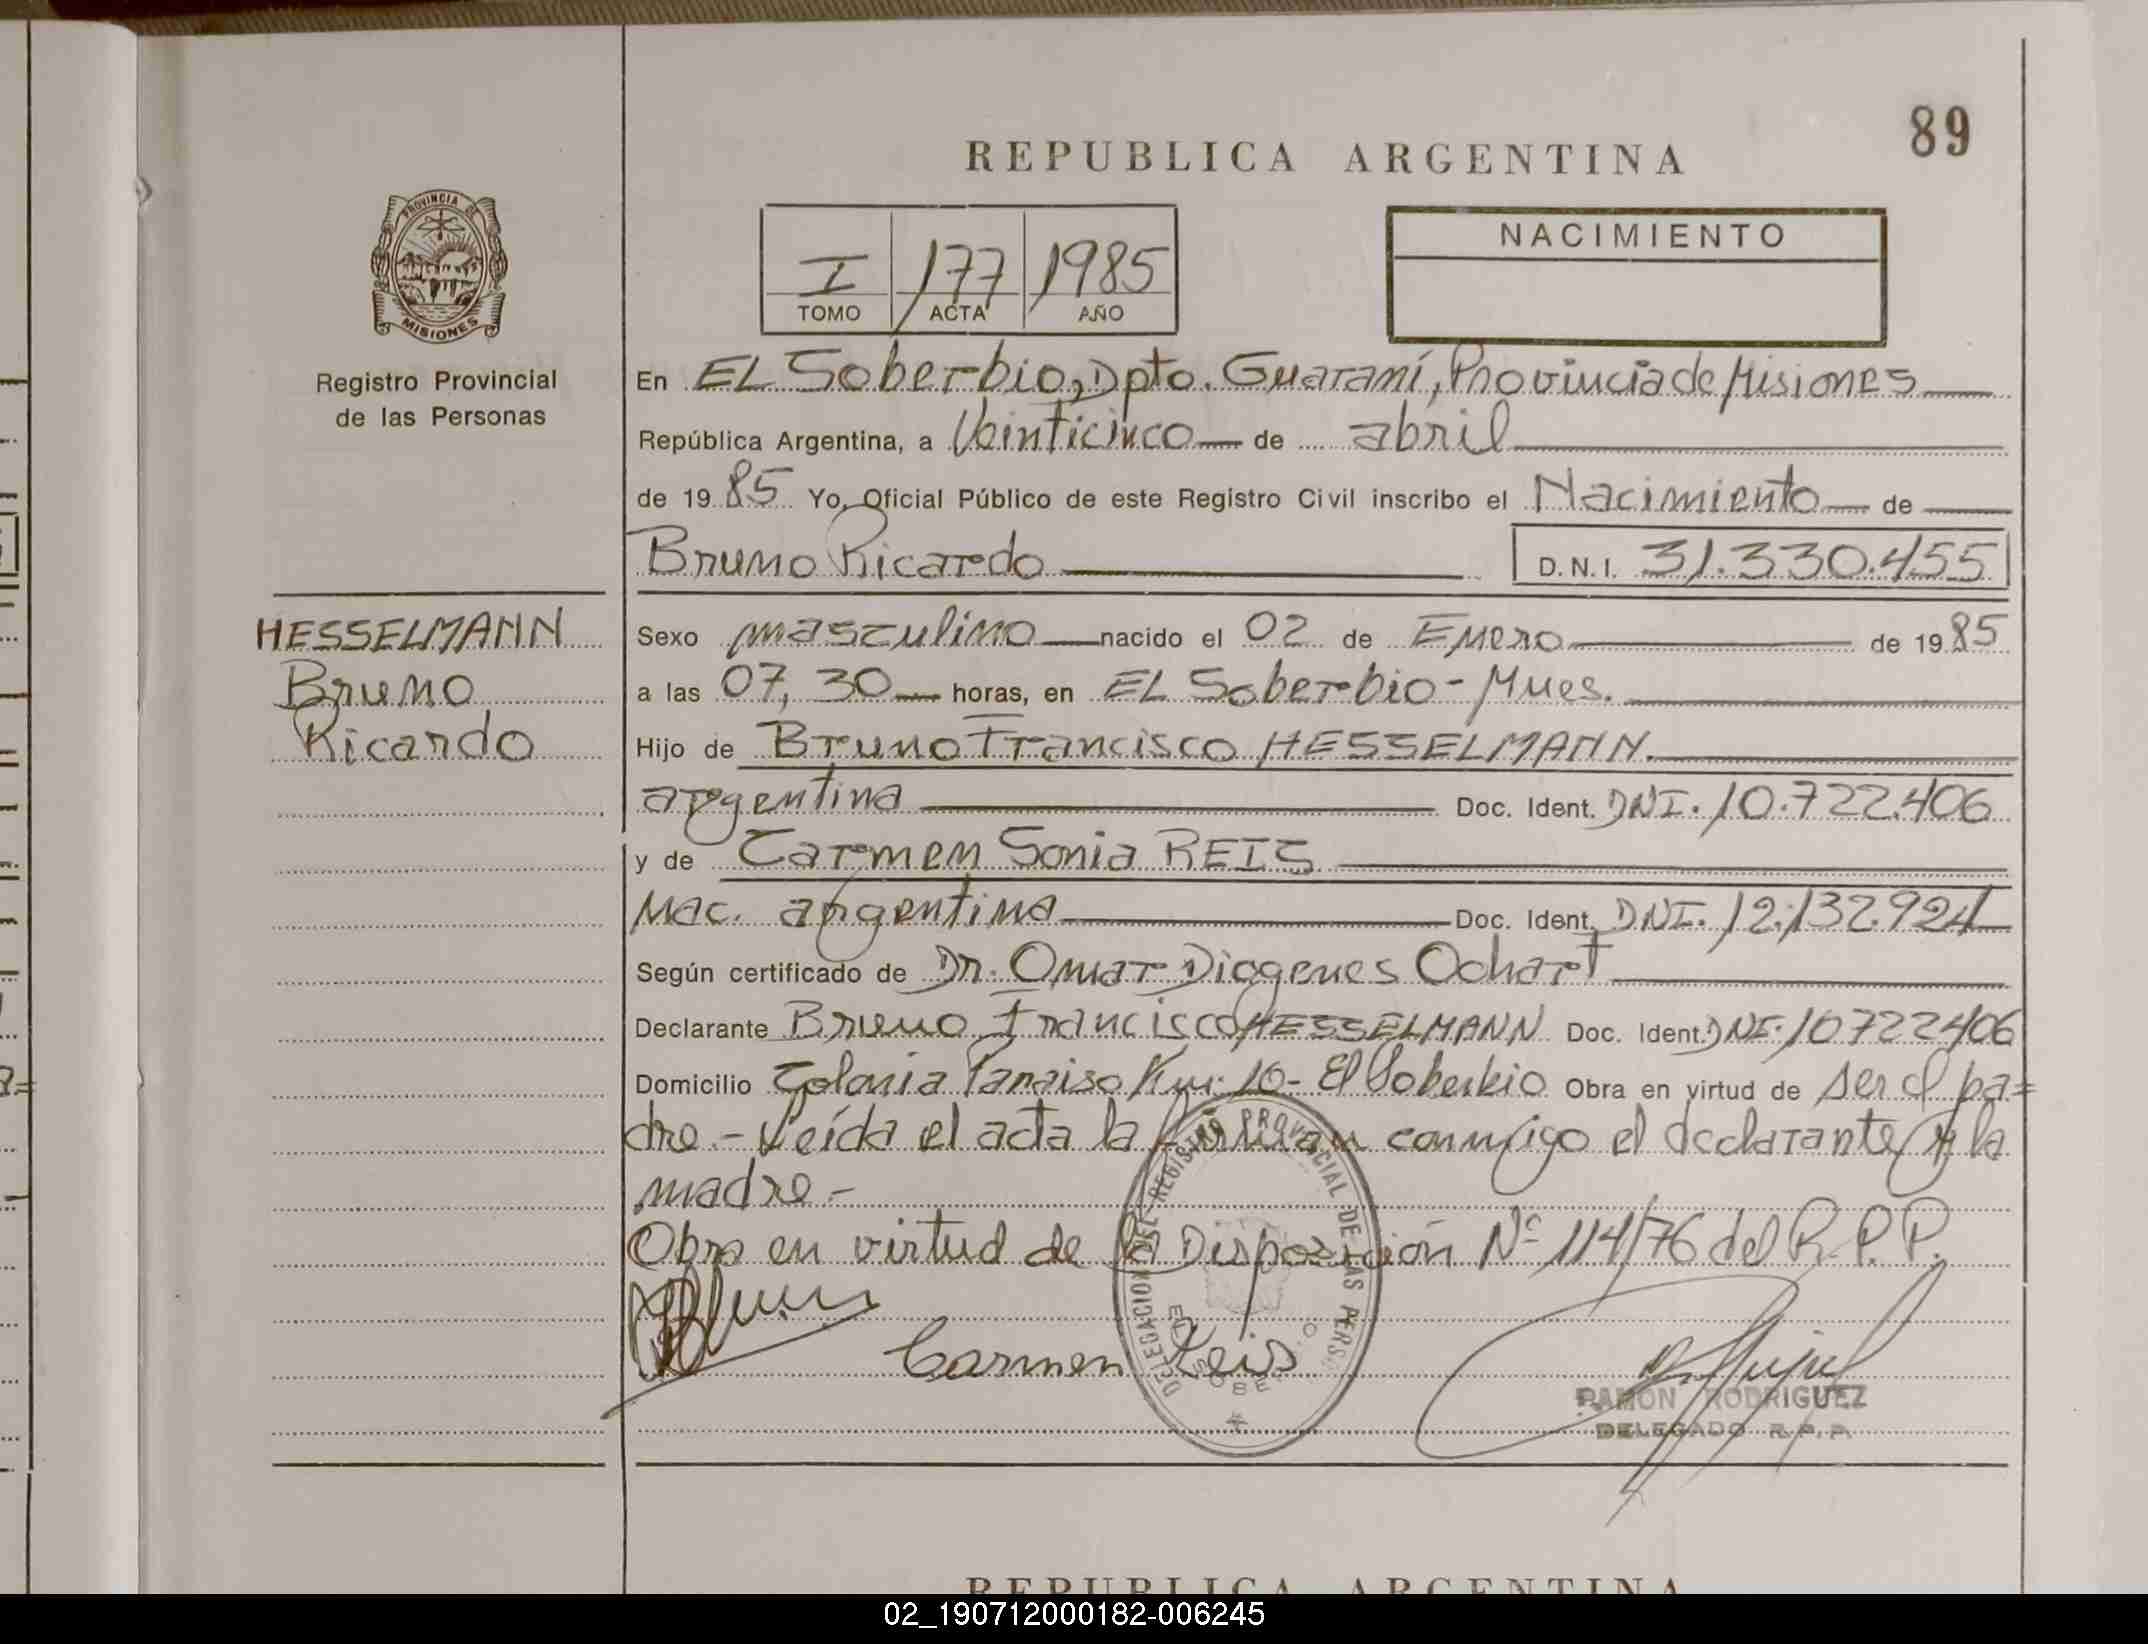 89
REPUBLICA ARGENTINA
PROVINCIA DE
MISIONES
Registro Provincial
de las Personas
I 177 1985
TOMO ACTA AÑO
NACIMIENTO
En EL Soberbio, Dpto. Guaraní, Provincia de Misiones
República Argentina, a Veinticinco de abril
de 1985 Yo, Oficial Público de este Registro Civil inscribo el Nacimiento de
Bruno Ricardo D.N.I. 31.330.455
HESSELMANN
Bruno
Ricardo
Sexo masculino nacido el 02 de Enero de 1985
a las 07,30 horas, en EL Soberbio - Mnes.
Hijo de Bruno Francisco HESSELMANN.
argentina Doc. Ident. DNI. 10.722.406
y de Carmen Sonia REIS
Nac. argentina Doc. Ident. DNI. 12.132.924
Según certificado de Dr. Omar Diogenes Ochart
Declarante Bruno Francisco HESSELMANN Doc. Ident. DNI. 10722406
Domicilio Colonia Paraiso Km. 10 - El Soberbio Obra en virtud de ser el pa=
dre.- Leída el acta la firman conmigo el declarante y la
madre.-
Obra en virtud de la Disposición Nº 114/76 del R.P.P.
Carmen Reis
DELEGACION DEL REGISTRO PROVINCIAL DE LAS PERSO
EL SOBE IO
RAMON RODRIGUEZ
DELEGADO R.P.P.
REPUBLICA ARGENTINA
02_190712000182-006245